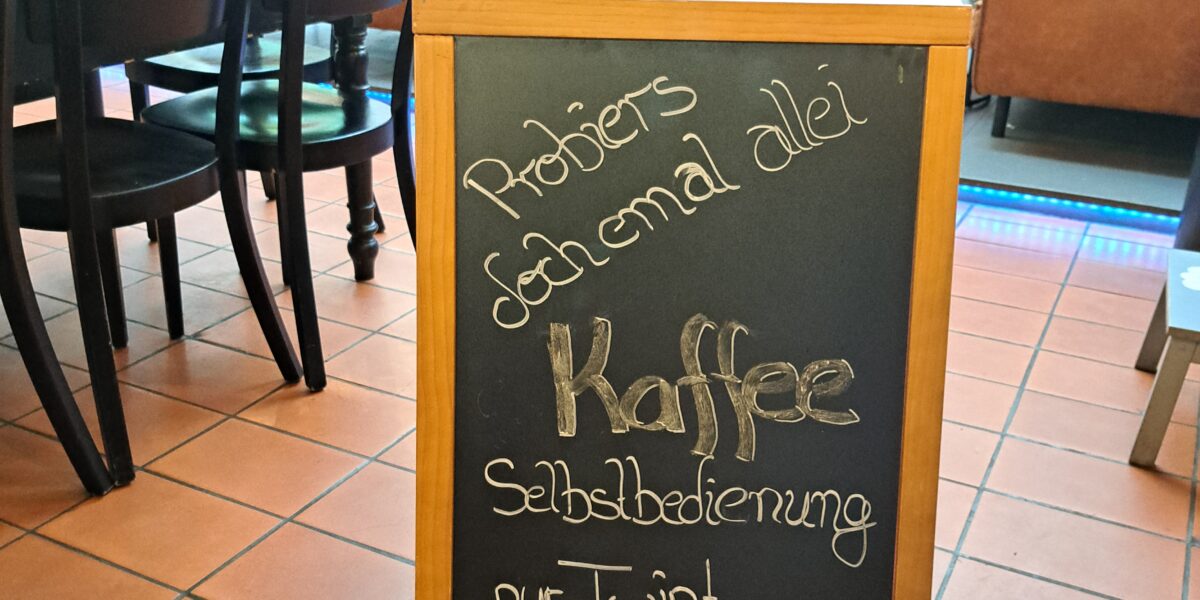 Probiers
doch emal allei
Kaffee
Selbstbedienung
nur Twint